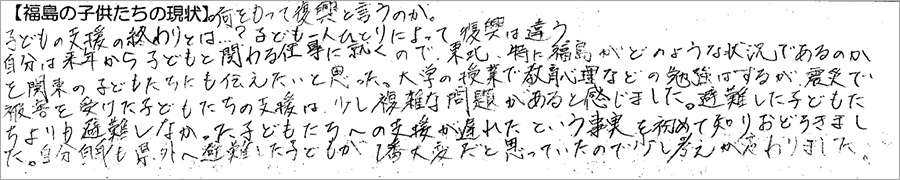 【福島の子供たちの現状】何をもって復興と言うのか。
子どもの支援の終わりとは…？子ども一人ひとりによって復興は違う
自分は来年から子どもと関わる仕事に就くので、東北、特に福島がどのような状況であるのか
を関東の子どもたちにも伝えたいと思った。大学の授業で教育心理などの勉強はするが震災で
被害を受けた子どもたちの支援は、少し複雑な問題があると感じました。避難した子どもた
ちよりも避難しなかった子どもたちへの支援が遅れたという事実を初めて知りおどろきまし
た。自分自身も県外へ避難した子どもが1番大変だと思っていたので少し考えが変わりました。